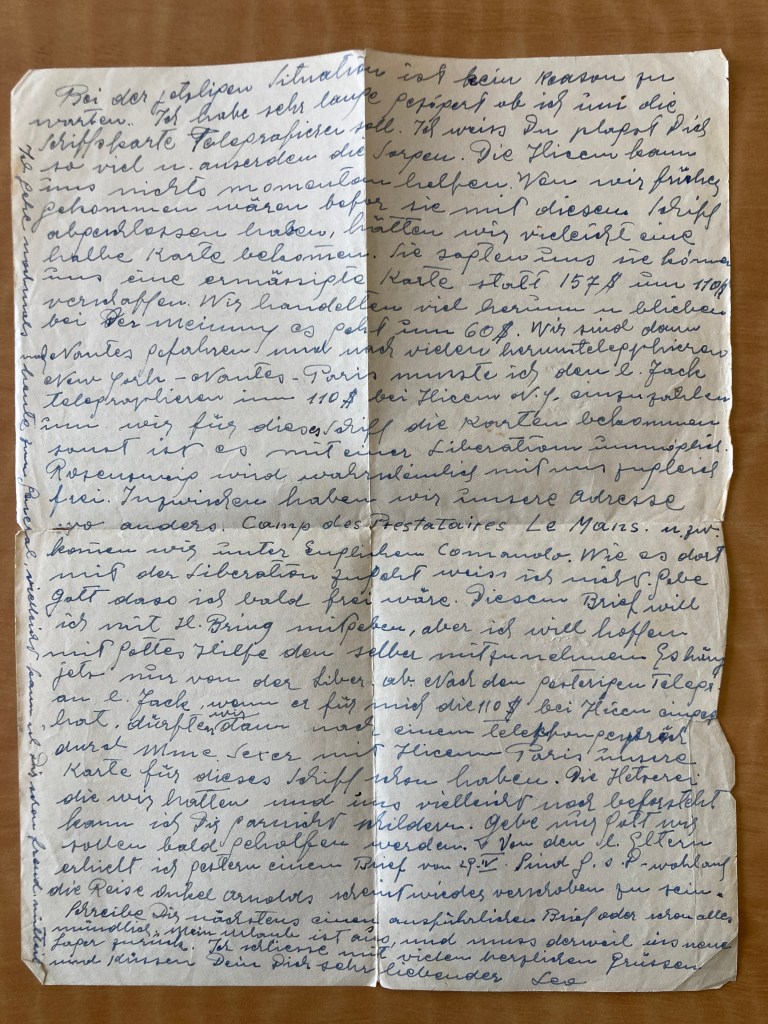 Bei der jetzigen Situation ist kein Reason zu
warten. Ich habe sehr lange gezögert ob ich um die
Schiffskarte Telegrafieren soll. Ich weiss Du plagst Dich
so viel u. auserdem die Sorgen. Die Hicem kann
uns nichts momentan helfen. Wen wir früher
gekommen wären befor sie mit diesem Schiff
abgeschlossen haben, hätten wir vieleicht eine
halbe Karte bekommen. Sie sagten uns sie könen
uns eine ermässigte Karte statt 157$ um 110$
verschaffen. Wir handelten viel herum u blieben
bei der Meinung es geht um 60$. Wir sind dann
nach Nantes gefahren und nach vielen herumtelephonieren
New York - Nantes - Paris musste ich den l. Jack
telegraphieren um 110$ bei Hicem N.Y. einzuzahlen
um wir für dieses Schiff die Karten bekommen
sonst ist es mit einer Liberation unmöglich.
Rosenzweig wird wahrscheinlich mit uns zugleich
frei. Inzwischen haben wir unsere Adresse
wo anders. Camp des Prestataires Le Mans. u. zw.
komen wir unter Englischen Comando. Wie es dort
mit der Liberation zugeht weiss ich nicht. Gebe
Gott dass ich bald frei wäre. Diesen Brief will
ich mit H. Bring mitgeben, aber ich will hoffen
mit Gottes Hilfe den selber mitzunehmen. Es häng
jetz nur von der Liber. ab. Nach den gestrigen Telegr.
an l. Jack, wenn er für mich die 110$ bei Hicem eingez
hat, dürften wir dann nach einem telephongespräch
durch Mme Sexer mit Hicem Paris unsere
Karte für dieses Schiff schon haben. Die Hetzerei
die wir hatten und uns vielleicht noch beforsteht
kann ich Dir garnicht schildern. Gebe nur Gott wir
sollen bald geholfen werden. Von den l. Eltern
erhielt ich gestern einem Brief von 29.IV. Sind G. s. D. wohlauf
die Reise Onkel Arnolds scheint wieder verschoben zu sein.
Schreibe Dir nächstens einen ausführlichen Brief oder schon alles
mündlich. Mein Urlaub ist aus, und muss derweil ins neue
Lager zurück. Ich schliesse mit vielen herzlichen Grüssen
und Küssen Dein Dich sehr liebender Leo
Ich gehe nochmals heute zum General, vielleicht kann ich Dir schon freud. mitteil